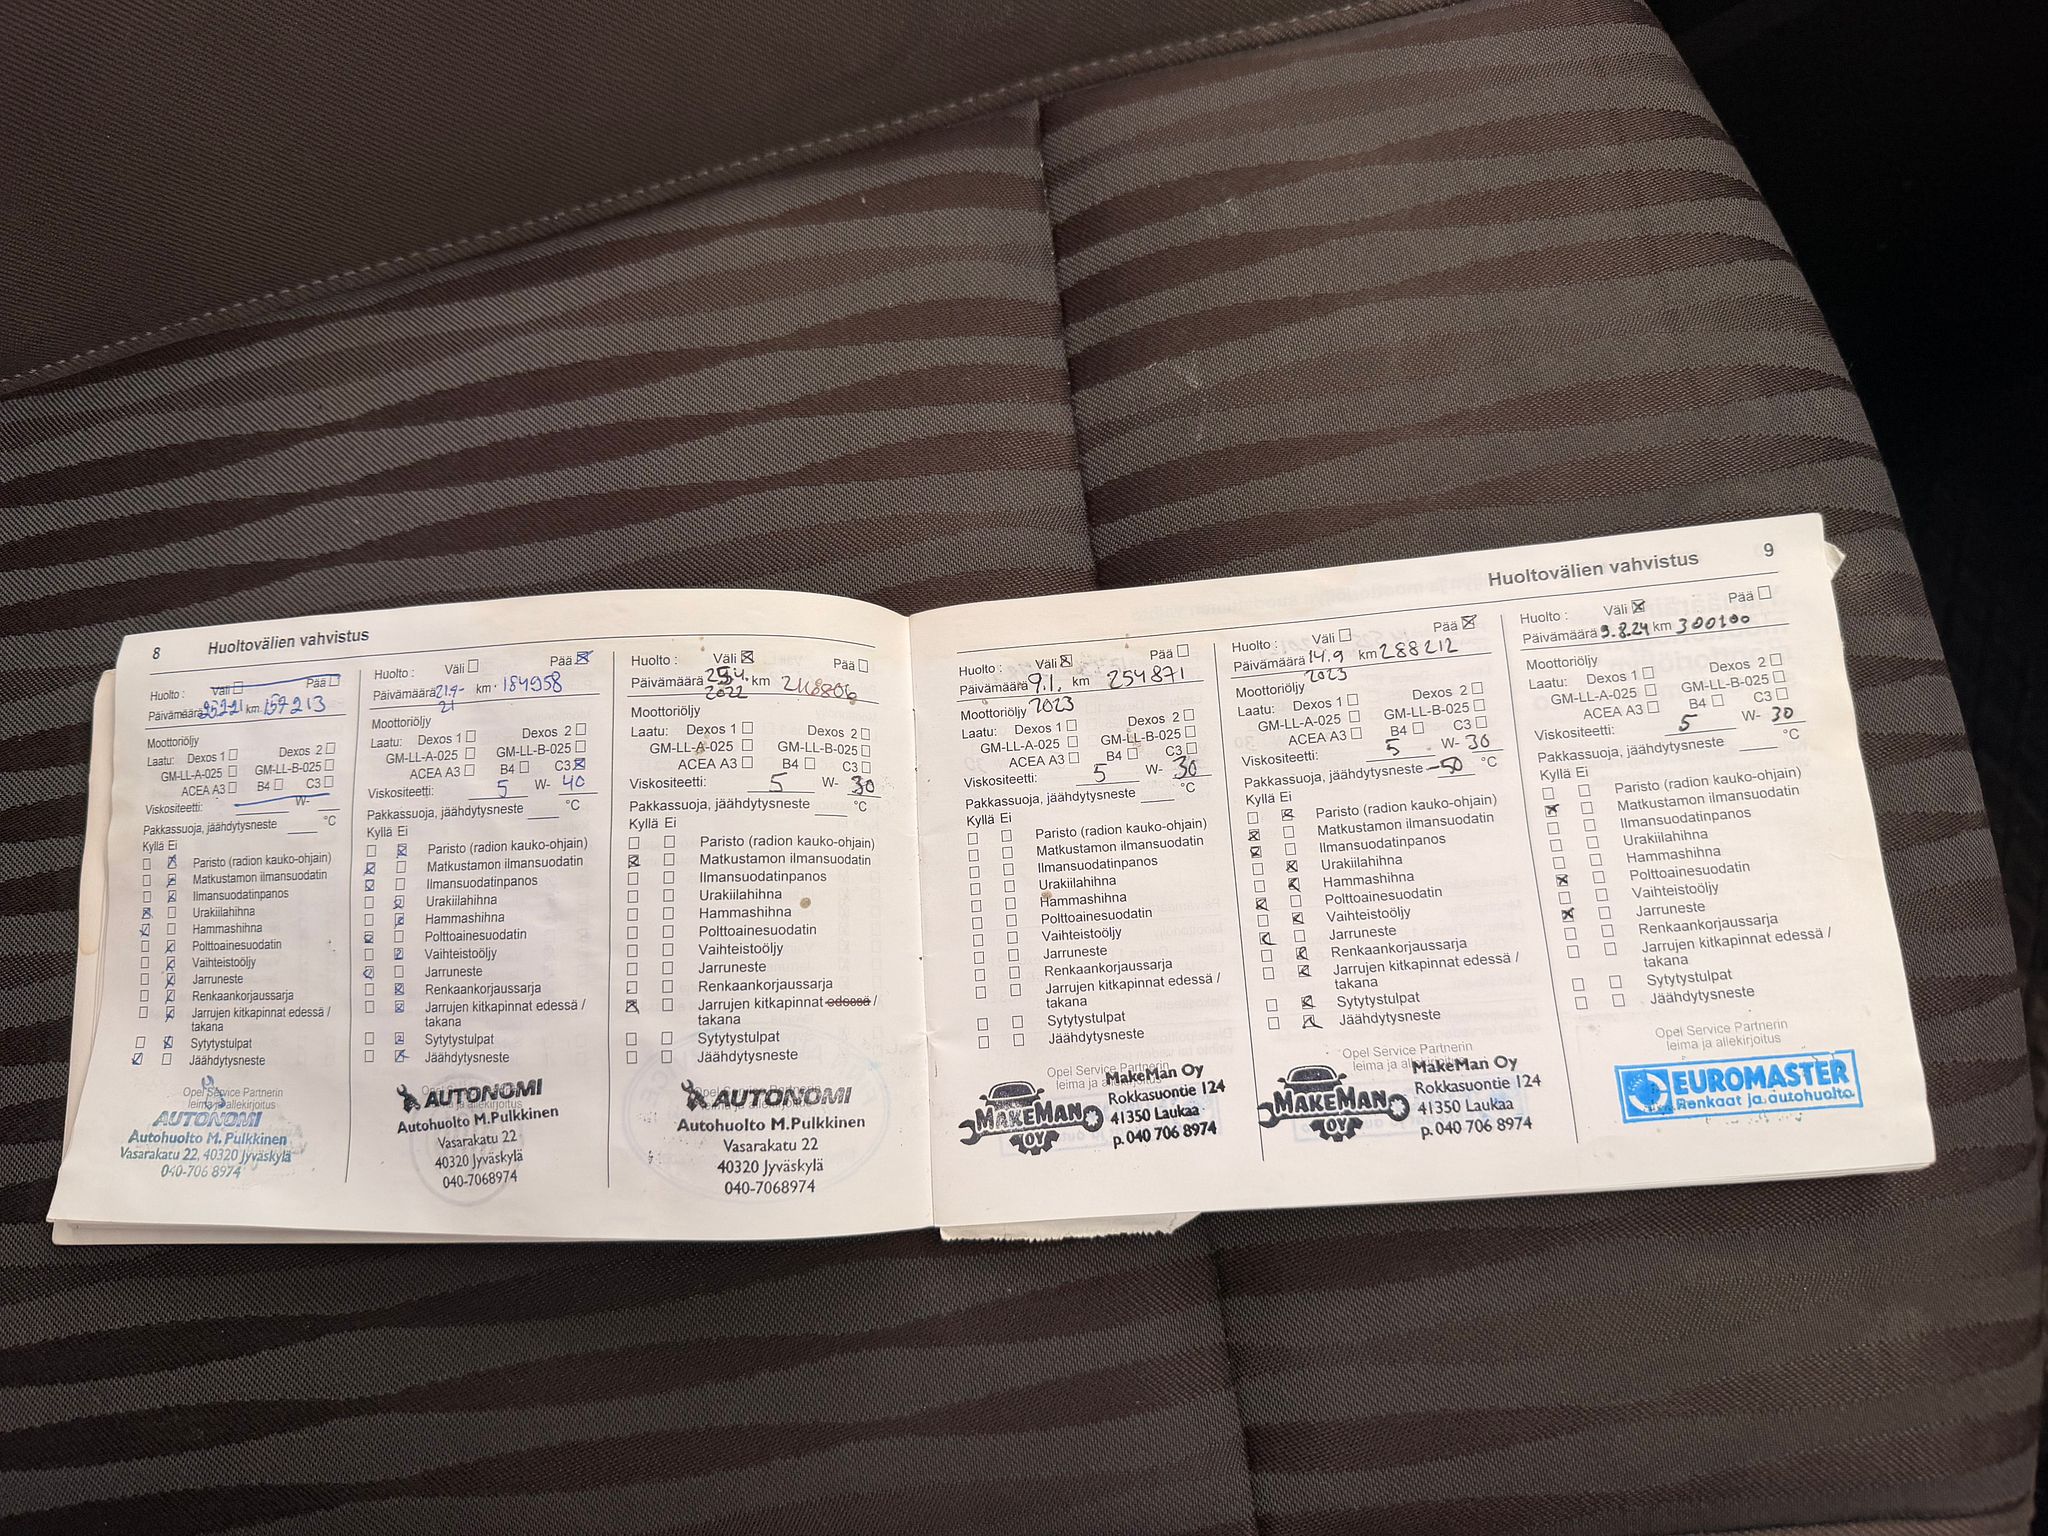 8 Huoltovälien vahvistus
Huolto : Väli ☐ Pää ☐
Päivämäärä km 157213
Moottoriöljy
Laatu: Dexos 1 ☐ Dexos 2 ☐
GM-LL-A-025 ☐ GM-LL-B-025 ☐
ACEA A3 ☐ B4 ☐ C3 ☐
Viskositeetti: W-
Pakkassuoja, jäähdytysneste ____ °C
Kyllä Ei
☐ ☒ Paristo (radion kauko-ohjain)
☐ ☒ Matkustamon ilmansuodatin
☐ ☒ Ilmansuodatinpanos
☒ ☐ Urakiilahihna
☒ ☐ Hammashihna
☐ ☒ Polttoainesuodatin
☐ ☒ Vaihteistoöljy
☐ ☒ Jarruneste
☐ ☒ Renkaankorjaussarja
☐ ☒ Jarrujen kitkapinnat edessä /
takana
☐ ☒ Sytytystulpat
☒ ☐ Jäähdytysneste
Opel Service Partnerin
leima ja allekirjoitus
AUTONOMI
Autohuolto M.Pulkkinen
Vasarakatu 22, 40320 Jyväskylä
040-706 8974
Huolto : Väli ☐ Pää ☒
Päivämäärä 21.9- km 184958
21
Moottoriöljy
Laatu: Dexos 1 ☐ Dexos 2 ☐
GM-LL-A-025 ☐ GM-LL-B-025 ☐
ACEA A3 ☐ B4 ☐ C3 ☒
Viskositeetti: 5 W- 40
Pakkassuoja, jäähdytysneste ____ °C
Kyllä Ei
☐ ☒ Paristo (radion kauko-ohjain)
☒ ☐ Matkustamon ilmansuodatin
☒ ☐ Ilmansuodatinpanos
☐ ☒ Urakiilahihna
☐ ☒ Hammashihna
☒ ☐ Polttoainesuodatin
☐ ☒ Vaihteistoöljy
☒ ☐ Jarruneste
☐ ☒ Renkaankorjaussarja
☐ ☒ Jarrujen kitkapinnat edessä /
takana
☐ ☒ Sytytystulpat
☐ ☒ Jäähdytysneste
AUTONOMI
Autohuolto M.Pulkkinen
Vasarakatu 22
40320 Jyväskylä
040-7068974
Huolto : Väli ☒ Pää ☐
Päivämäärä km
2022
Moottoriöljy
Laatu: Dexos 1 ☐ Dexos 2 ☐
GM-LL-A-025 ☐ GM-LL-B-025 ☐
ACEA A3 ☐ B4 ☐ C3 ☐
Viskositeetti: 5 W- 30
Pakkassuoja, jäähdytysneste ____ °C
Kyllä Ei
☐ ☐ Paristo (radion kauko-ohjain)
☒ ☐ Matkustamon ilmansuodatin
☐ ☐ Ilmansuodatinpanos
☐ ☐ Urakiilahihna
☐ ☐ Hammashihna
☐ ☐ Polttoainesuodatin
☐ ☐ Vaihteistoöljy
☐ ☐ Jarruneste
☐ ☐ Renkaankorjaussarja
☒ ☐ Jarrujen kitkapinnat edessä /
takana
☐ ☐ Sytytystulpat
☐ ☐ Jäähdytysneste
Opel Service Partnerin
AUTONOMI
Autohuolto M.Pulkkinen
Vasarakatu 22
40320 Jyväskylä
040-7068974
Huoltovälien vahvistus 9
Huolto : Väli ☒ Pää ☐
Päivämäärä 9.1. km 254871
2023
Moottoriöljy
Laatu: Dexos 1 ☐ Dexos 2 ☐
GM-LL-A-025 ☐ GM-LL-B-025 ☐
ACEA A3 ☐ B4 ☐ C3 ☐
Viskositeetti: 5 W- 30
Pakkassuoja, jäähdytysneste ____ °C
Kyllä Ei
☐ ☐ Paristo (radion kauko-ohjain)
☐ ☐ Matkustamon ilmansuodatin
☐ ☐ Ilmansuodatinpanos
☐ ☐ Urakiilahihna
☐ ☐ Hammashihna
☐ ☐ Polttoainesuodatin
☐ ☐ Vaihteistoöljy
☐ ☐ Jarruneste
☐ ☐ Renkaankorjaussarja
☐ ☐ Jarrujen kitkapinnat edessä /
takana
☐ ☐ Sytytystulpat
☐ ☐ Jäähdytysneste
Opel Service Partnerin
leima ja allekirjoitus
MAKEMAN OY
MakeMan Oy
Rokkasuontie 124
41350 Laukaa
p. 040 706 8974
Huolto : Väli ☐ Pää ☒
Päivämäärä 14.9 km 288212
2023
Moottoriöljy
Laatu: Dexos 1 ☐ Dexos 2 ☐
GM-LL-A-025 ☐ GM-LL-B-025 ☐
ACEA A3 ☐ B4 ☐ C3 ☐
Viskositeetti: 5 W- 30
Pakkassuoja, jäähdytysneste -50 °C
Kyllä Ei
☐ ☒ Paristo (radion kauko-ohjain)
☒ ☐ Matkustamon ilmansuodatin
☒ ☐ Ilmansuodatinpanos
☐ ☒ Urakiilahihna
☐ ☒ Hammashihna
☒ ☐ Polttoainesuodatin
☐ ☒ Vaihteistoöljy
☒ ☐ Jarruneste
☐ ☒ Renkaankorjaussarja
☐ ☒ Jarrujen kitkapinnat edessä /
takana
☐ ☒ Sytytystulpat
☐ ☒ Jäähdytysneste
Opel Service Partnerin
leima ja allekirjoitus
MAKEMAN OY
MakeMan Oy
Rokkasuontie 124
41350 Laukaa
p. 040 706 8974
Huolto : Väli ☒ Pää ☐
Päivämäärä 9.8.24 km 300100
Moottoriöljy
Laatu: Dexos 1 ☐ Dexos 2 ☐
GM-LL-A-025 ☐ GM-LL-B-025 ☐
ACEA A3 ☐ B4 ☐ C3 ☐
Viskositeetti: 5 W- 30
Pakkassuoja, jäähdytysneste ____ °C
Kyllä Ei
☐ ☐ Paristo (radion kauko-ohjain)
☒ ☐ Matkustamon ilmansuodatin
☐ ☐ Ilmansuodatinpanos
☐ ☐ Urakiilahihna
☐ ☐ Hammashihna
☒ ☐ Polttoainesuodatin
☐ ☐ Vaihteistoöljy
☒ ☐ Jarruneste
☐ ☐ Renkaankorjaussarja
☐ ☐ Jarrujen kitkapinnat edessä /
takana
☐ ☐ Sytytystulpat
☐ ☐ Jäähdytysneste
Opel Service Partnerin
leima ja allekirjoitus
EUROMASTER
Renkaat ja autohuolto